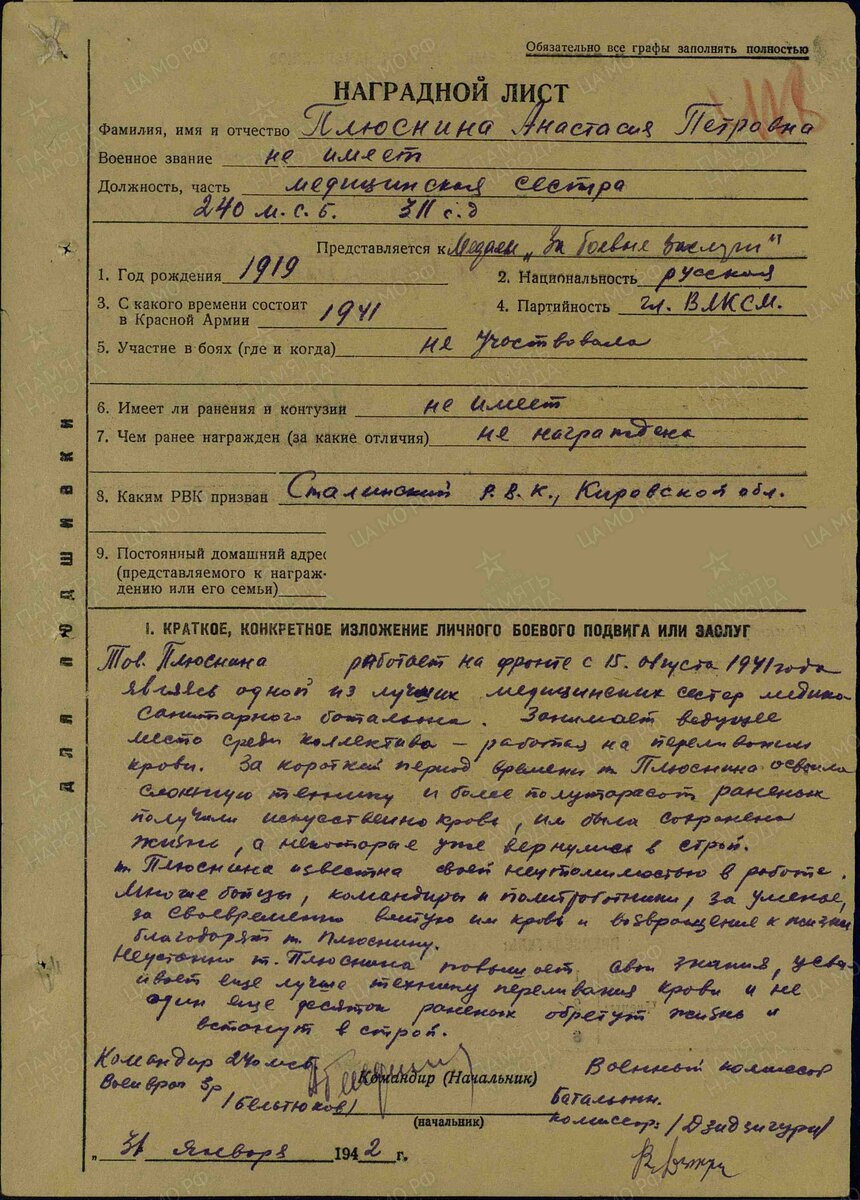 Обязательно все графы заполнять полностью
НАГРАДНОЙ ЛИСТ
Фамилия, имя и отчество Плюснина Анастасия Петровна
Военное звание не имеет
Должность, часть медицинская сестра
240 м.с.б. 311 с.д
Представляется к Медали „За боевые заслуги"
1. Год рождения 1919
2. Национальность русская
3. С какого времени состоит
в Красной Армии 1941
4. Партийность чл. ВЛКСМ.
5. Участие в боях (где и когда) не участвовала
6. Имеет ли ранения и контузии не имеет
7. Чем ранее награжден (за какие отличия) не награждена
8. Каким РВК призван Сталинский Р.В.К., Кировской обл.
9. Постоянный домашний адрес
(представляемого к награж-
дению или его семьи)
ДЛЯ ПОДШИВКИ
I. КРАТКОЕ, КОНКРЕТНОЕ ИЗЛОЖЕНИЕ ЛИЧНОГО БОЕВОГО ПОДВИГА ИЛИ ЗАСЛУГ
Тов. Плюснина работает на фронте с 15. августа 1941 года
являясь одной из лучших медицинских сестер медико
санитарного батальона. Занимает ведущее
место среди коллектива – работая на переливании
крови. За короткий период времени т. Плюснина освоила
сложную технику и более полутарасот раненых
получили искусственно кровь, им была сохранена
жизнь, а некоторые уже вернулись в строй.
т. Плюснина известна своей неутомимостью в работе.
Многие бойцы, командиры и политработники, за уменье,
за своевременно влитую им кровь и возвращение к жизни
благодарят т. Плюснину.
Неустанно т. Плюснина повышает свои знания, усва-
ивает еще лучше технику переливания крови и не
один еще десяток раненых обретут жизнь и
встанут в строй.
Командир 240 мсб
Военврач 3р
/Бельтюков/
Командир (Начальник)
(начальник)
Военный комиссар
Батальонн.
комиссар: /Дзидзигури/
„31 января 1942 г.
ЦА МО РФ
ПАМЯТЬ
НАРОДА